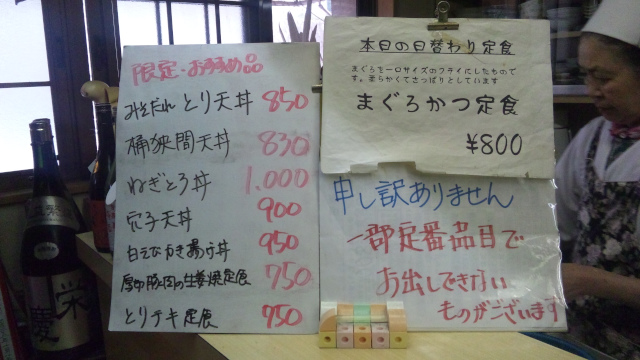 限定・おすすめ品
みそだれ とり天丼 850
桶狭間天丼 830
ねぎとろ丼 1,000
穴子天丼 900
白えびかき揚げ丼 950
厚切豚肉の生姜焼定食 750
とりテキ定食 750
本日の日替わり定食
まぐろを一口サイズのフライにしたもので
す。柔らかくてさっぱりとしています
まぐろかつ定食
¥800
申し訳ありません
一部定番品目で
お出しできない
ものがございます
栄
慶